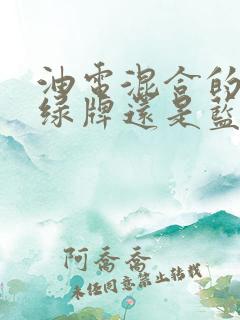 油電混合的
綠牌還是藍
阿喬喬
未經同意禁止轉載